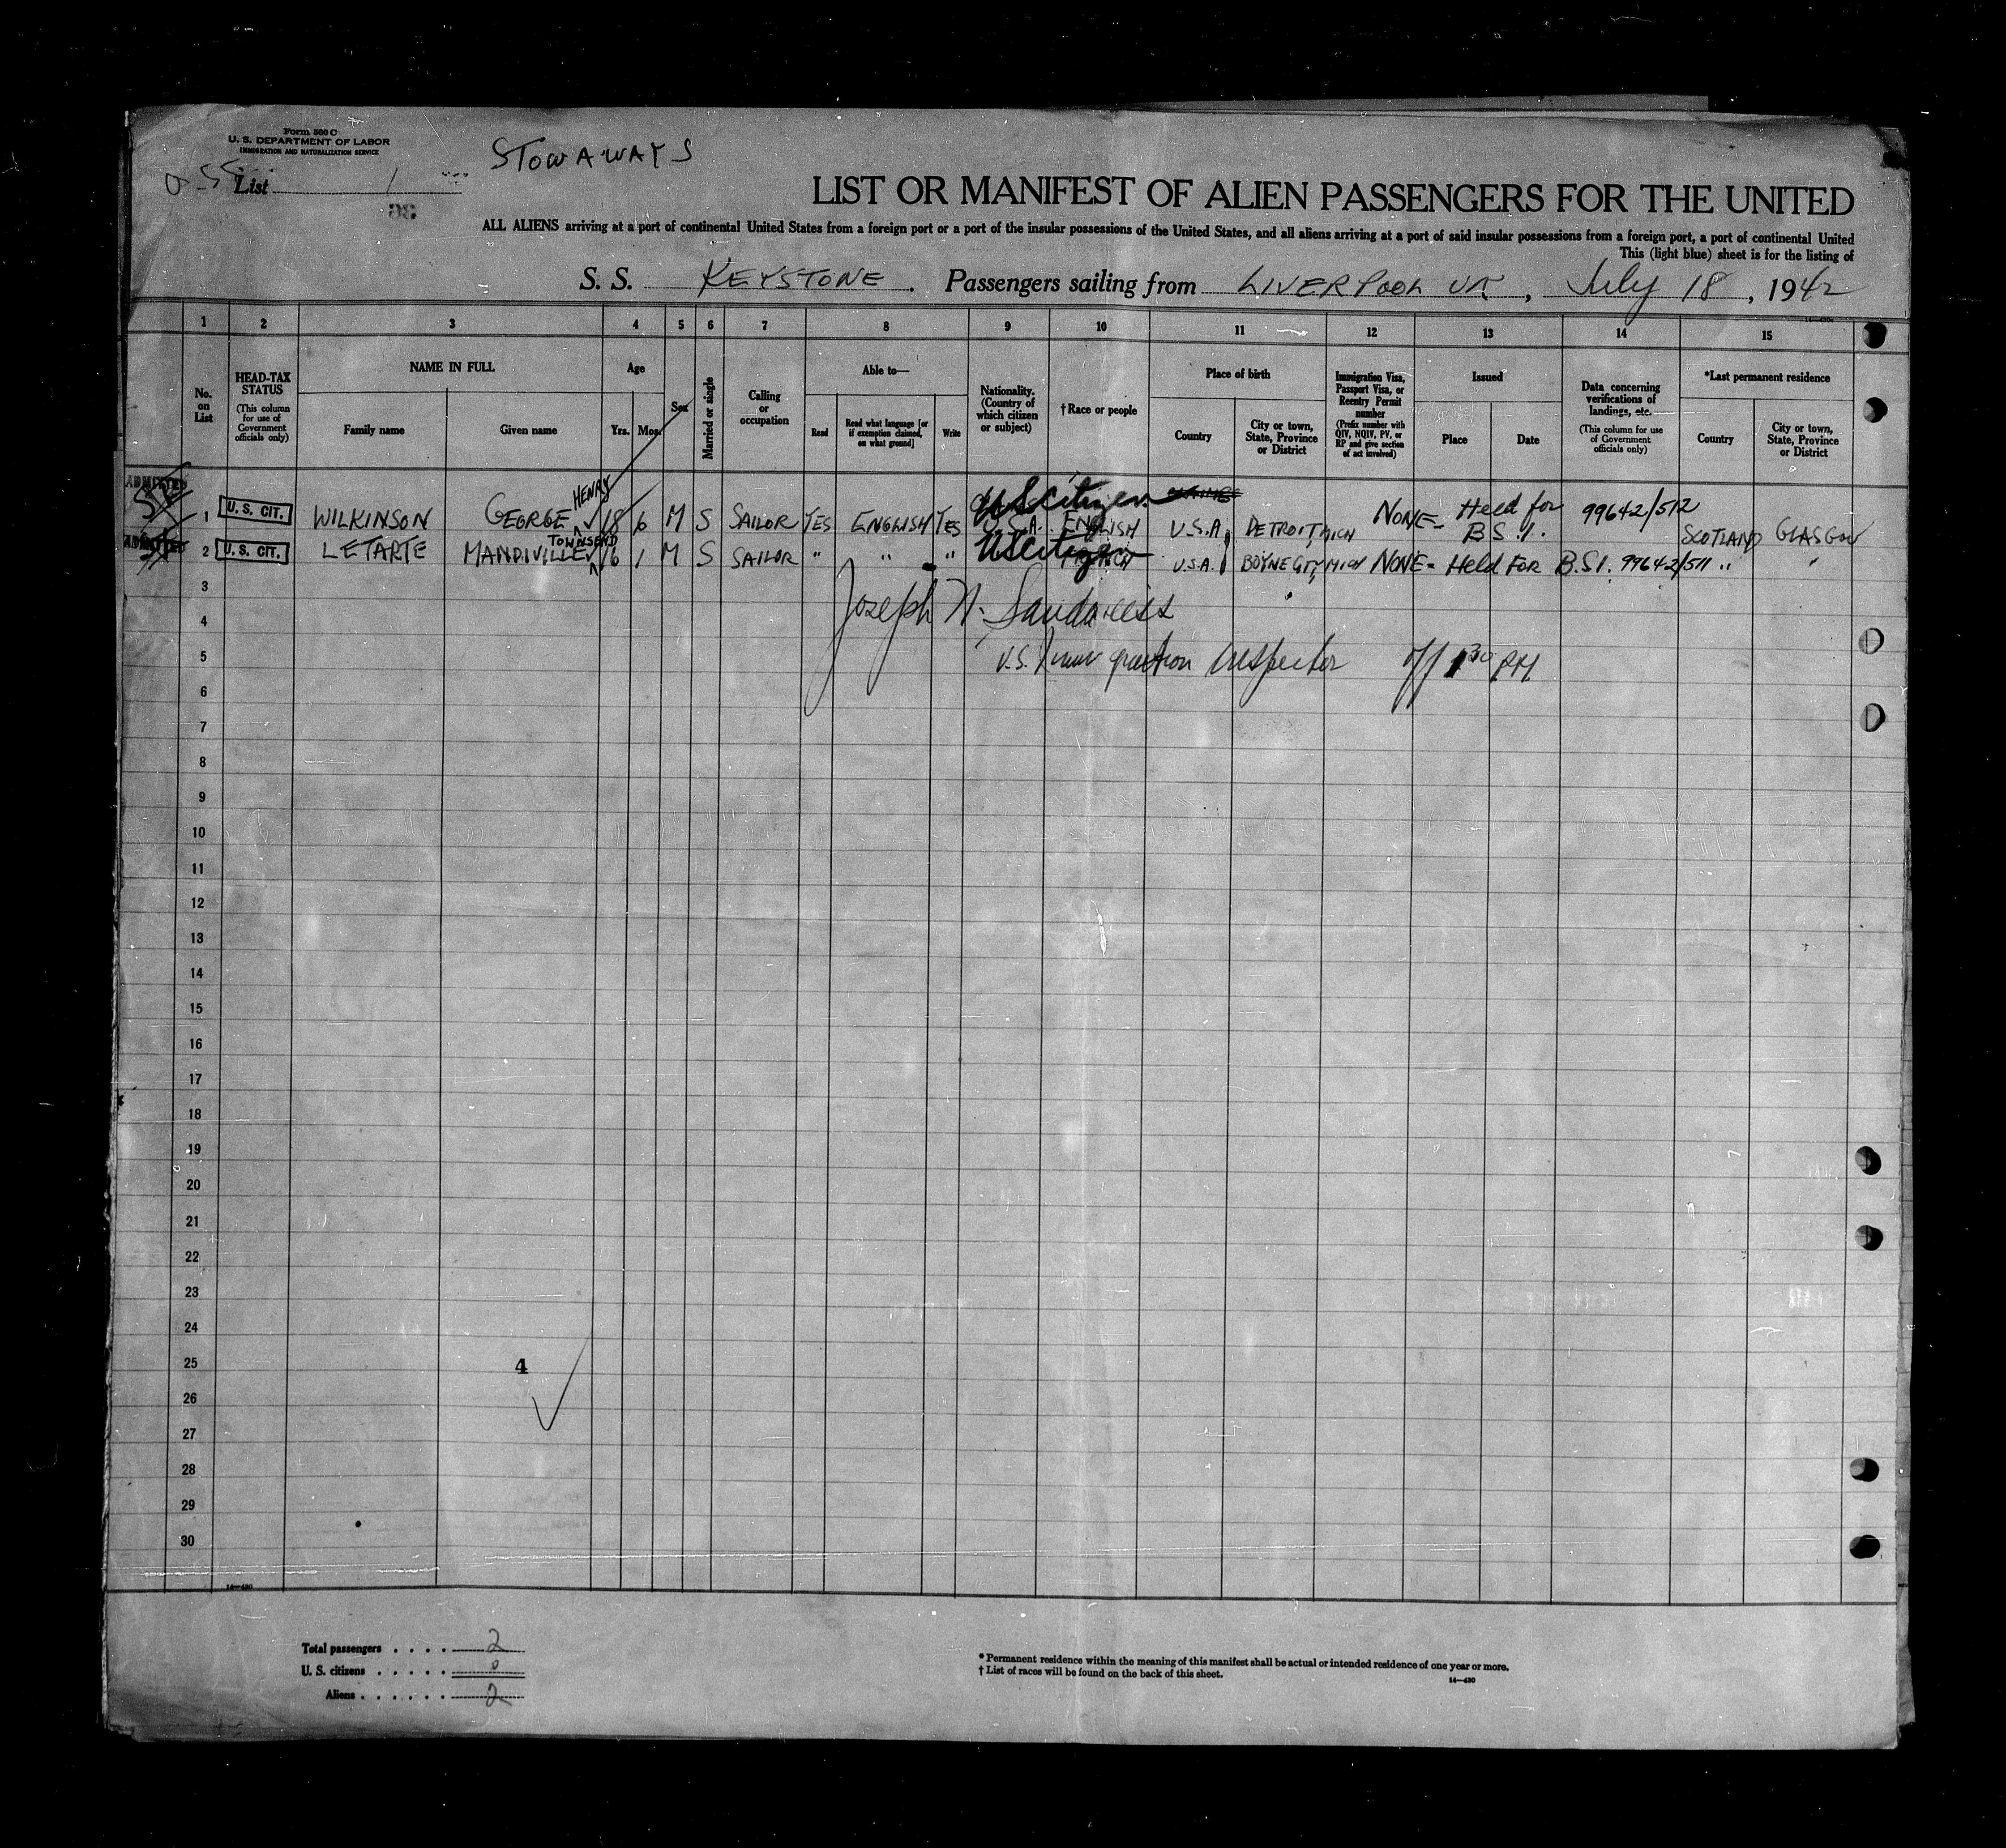 Form 500 C
U. S. DEPARTMENT OF LABOR
IMMIGRATION AND NATURALIZATION SERVICE
STOWAWAYS
List 1
LIST OR MANIFEST OF ALIEN PASSENGERS FOR THE UNITED
ALL ALIENS arriving at a port of continental United States from a foreign port or a port of the insular possessions of the United States, and all aliens arriving at a port of said insular possessions from a foreign port, a port of continental United
This (light blue) sheet is for the listing of
S. S. KEYSTONE . Passengers sailing from LIVERPOOL UK , July 18 , 1942
1 2 3 4 5 6 7 8 9 10 11 12 13 14 15
No. on List
HEAD-TAX STATUS (This column for use of Government officials only)
NAME IN FULL
Family name Given name
Age
Yrs. Mos.
Sex
Married or single
Calling or occupation
Able to—
Read Read what language [or if exemption claimed, on what ground] Write
Nationality. (Country of which citizen or subject)
†Race or people
Place of birth
Country City or town, State, Province or District
Immigration Visa, Passport Visa, or Reentry Permit number (Prefix number with QIV, NQIV, PV, or RP and give section of act involved)
Issued
Place Date
Data concerning verifications of landings, etc. (This column for use of Government officials only)
*Last permanent residence
Country City or town, State, Province or District
ADMITTED
HENRY US Citizen
1 U. S. CIT. WILKINSON GEORGE 18 6 M S SAILOR YES ENGLISH YES U.S.A. ENGLISH U.S.A. DETROIT, MICH NONE- Held for B.S.I. 99642/512 SCOTLAND GLASGOW
ADMITTED
TOWNSEND US Citizen
2 U. S. CIT. LETARTE MANDIVILLE 16 1 M S SAILOR " " " U.S.A. BOYNE CITY, MICH NONE- Held FOR B.S.I. 99642/511 " "
3
4 Joseph N.
5 U.S. Immigration Inspector 1 30 PM
6
7
8
9
10
11
12
13
14
15
16
17
18
19
20
21
22
23
24
25 4
26
27
28
29
30
14—430
Total passengers . . . . 2
U. S. citizens . . . . . 0
Aliens . . . . . . 2
* Permanent residence within the meaning of this manifest shall be actual or intended residence of one year or more.
† List of races will be found on the back of this sheet.
14—430